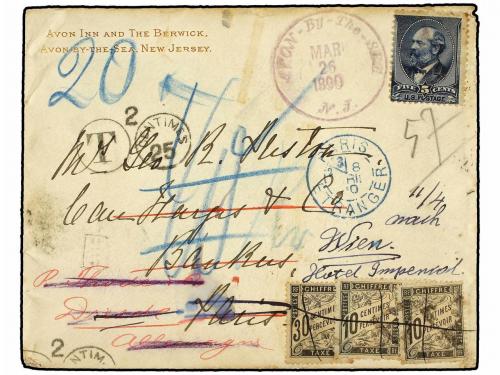 Avon Inn and The Berwick.
Avon-by-the-Sea, New Jersey.
20
AVON-By-The-Sea
MAR
26
1890
N.J.
FIVE 5 CENTS
U.S. POSTAGE
2
T
CENTIMES
25
57
Mr Geo R. Preston
PARIS
8
ETRANGER
Care & Co
11/4
nach
Bankers
Wien.
Hotel Imperial.
Paris
Allemagne
2
CENTIM
CHIFFRE
30 CENTIMES
PERCEVOIR
TAXE
CHIFFRE
10 CENTIMES
PERCEVOIR
TAXE
CHIFFRE
10 CENTIMES
PERCEVOIR
TAXE